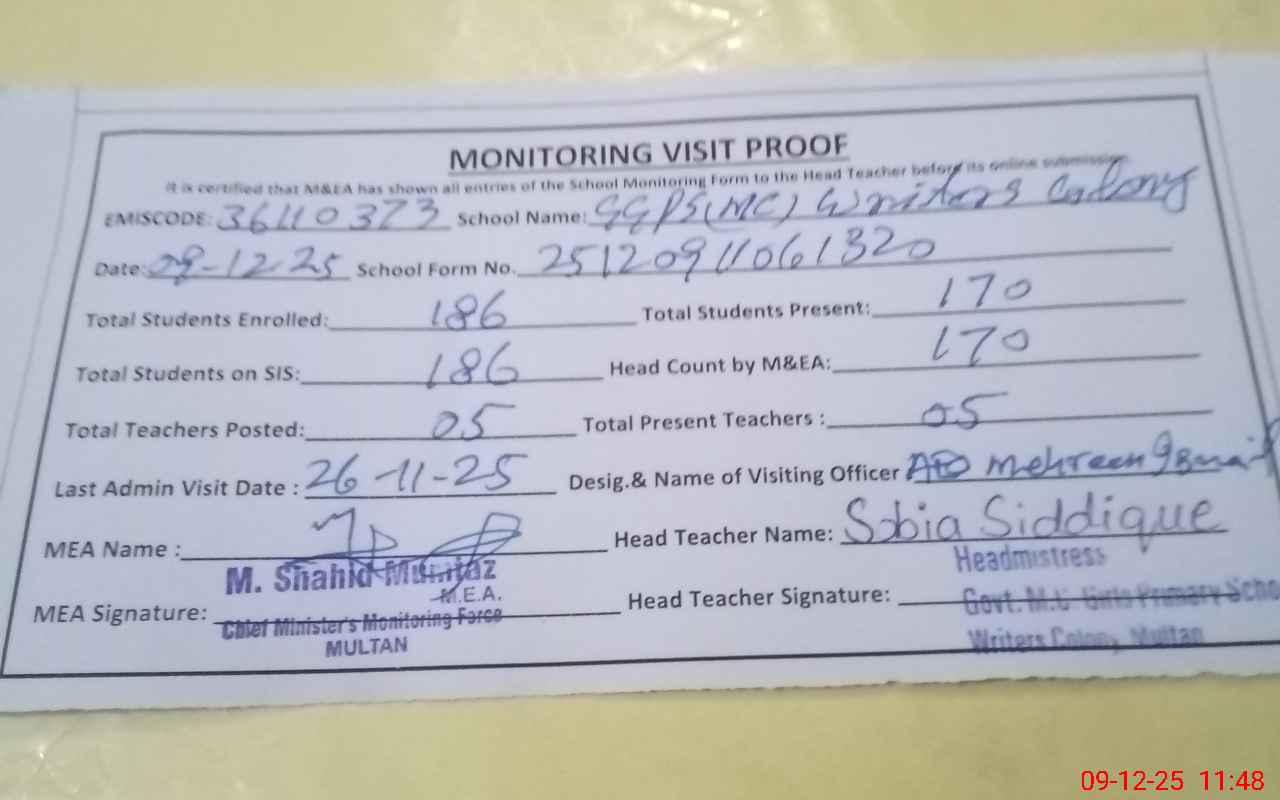 MONITORING VISIT PROOF
It is certified that M&EA has shown all entries of the School Monitoring Form to the Head Teacher before its online submission.
EMISCODE: 36110373 School Name: GGPS(MC) Writers Colony
Date: 09-12-25 School Form No. 25120911061320
Total Students Enrolled: 186 Total Students Present: 170
Total Students on SIS: 186 Head Count by M&EA: 170
Total Teachers Posted: 05 Total Present Teachers : 05
Last Admin Visit Date : 26-11-25 Desig.& Name of Visiting Officer Mehreen
MEA Name : Head Teacher Name: Sobia Siddique
M. Shahid Mumtaz Headmistress
M.E.A.
MEA Signature: Head Teacher Signature:
Chief Minister's Monitoring Force Govt. M.C. Girls Primary Scho
MULTAN Writers Colony, Multan
09-12-25 11:48